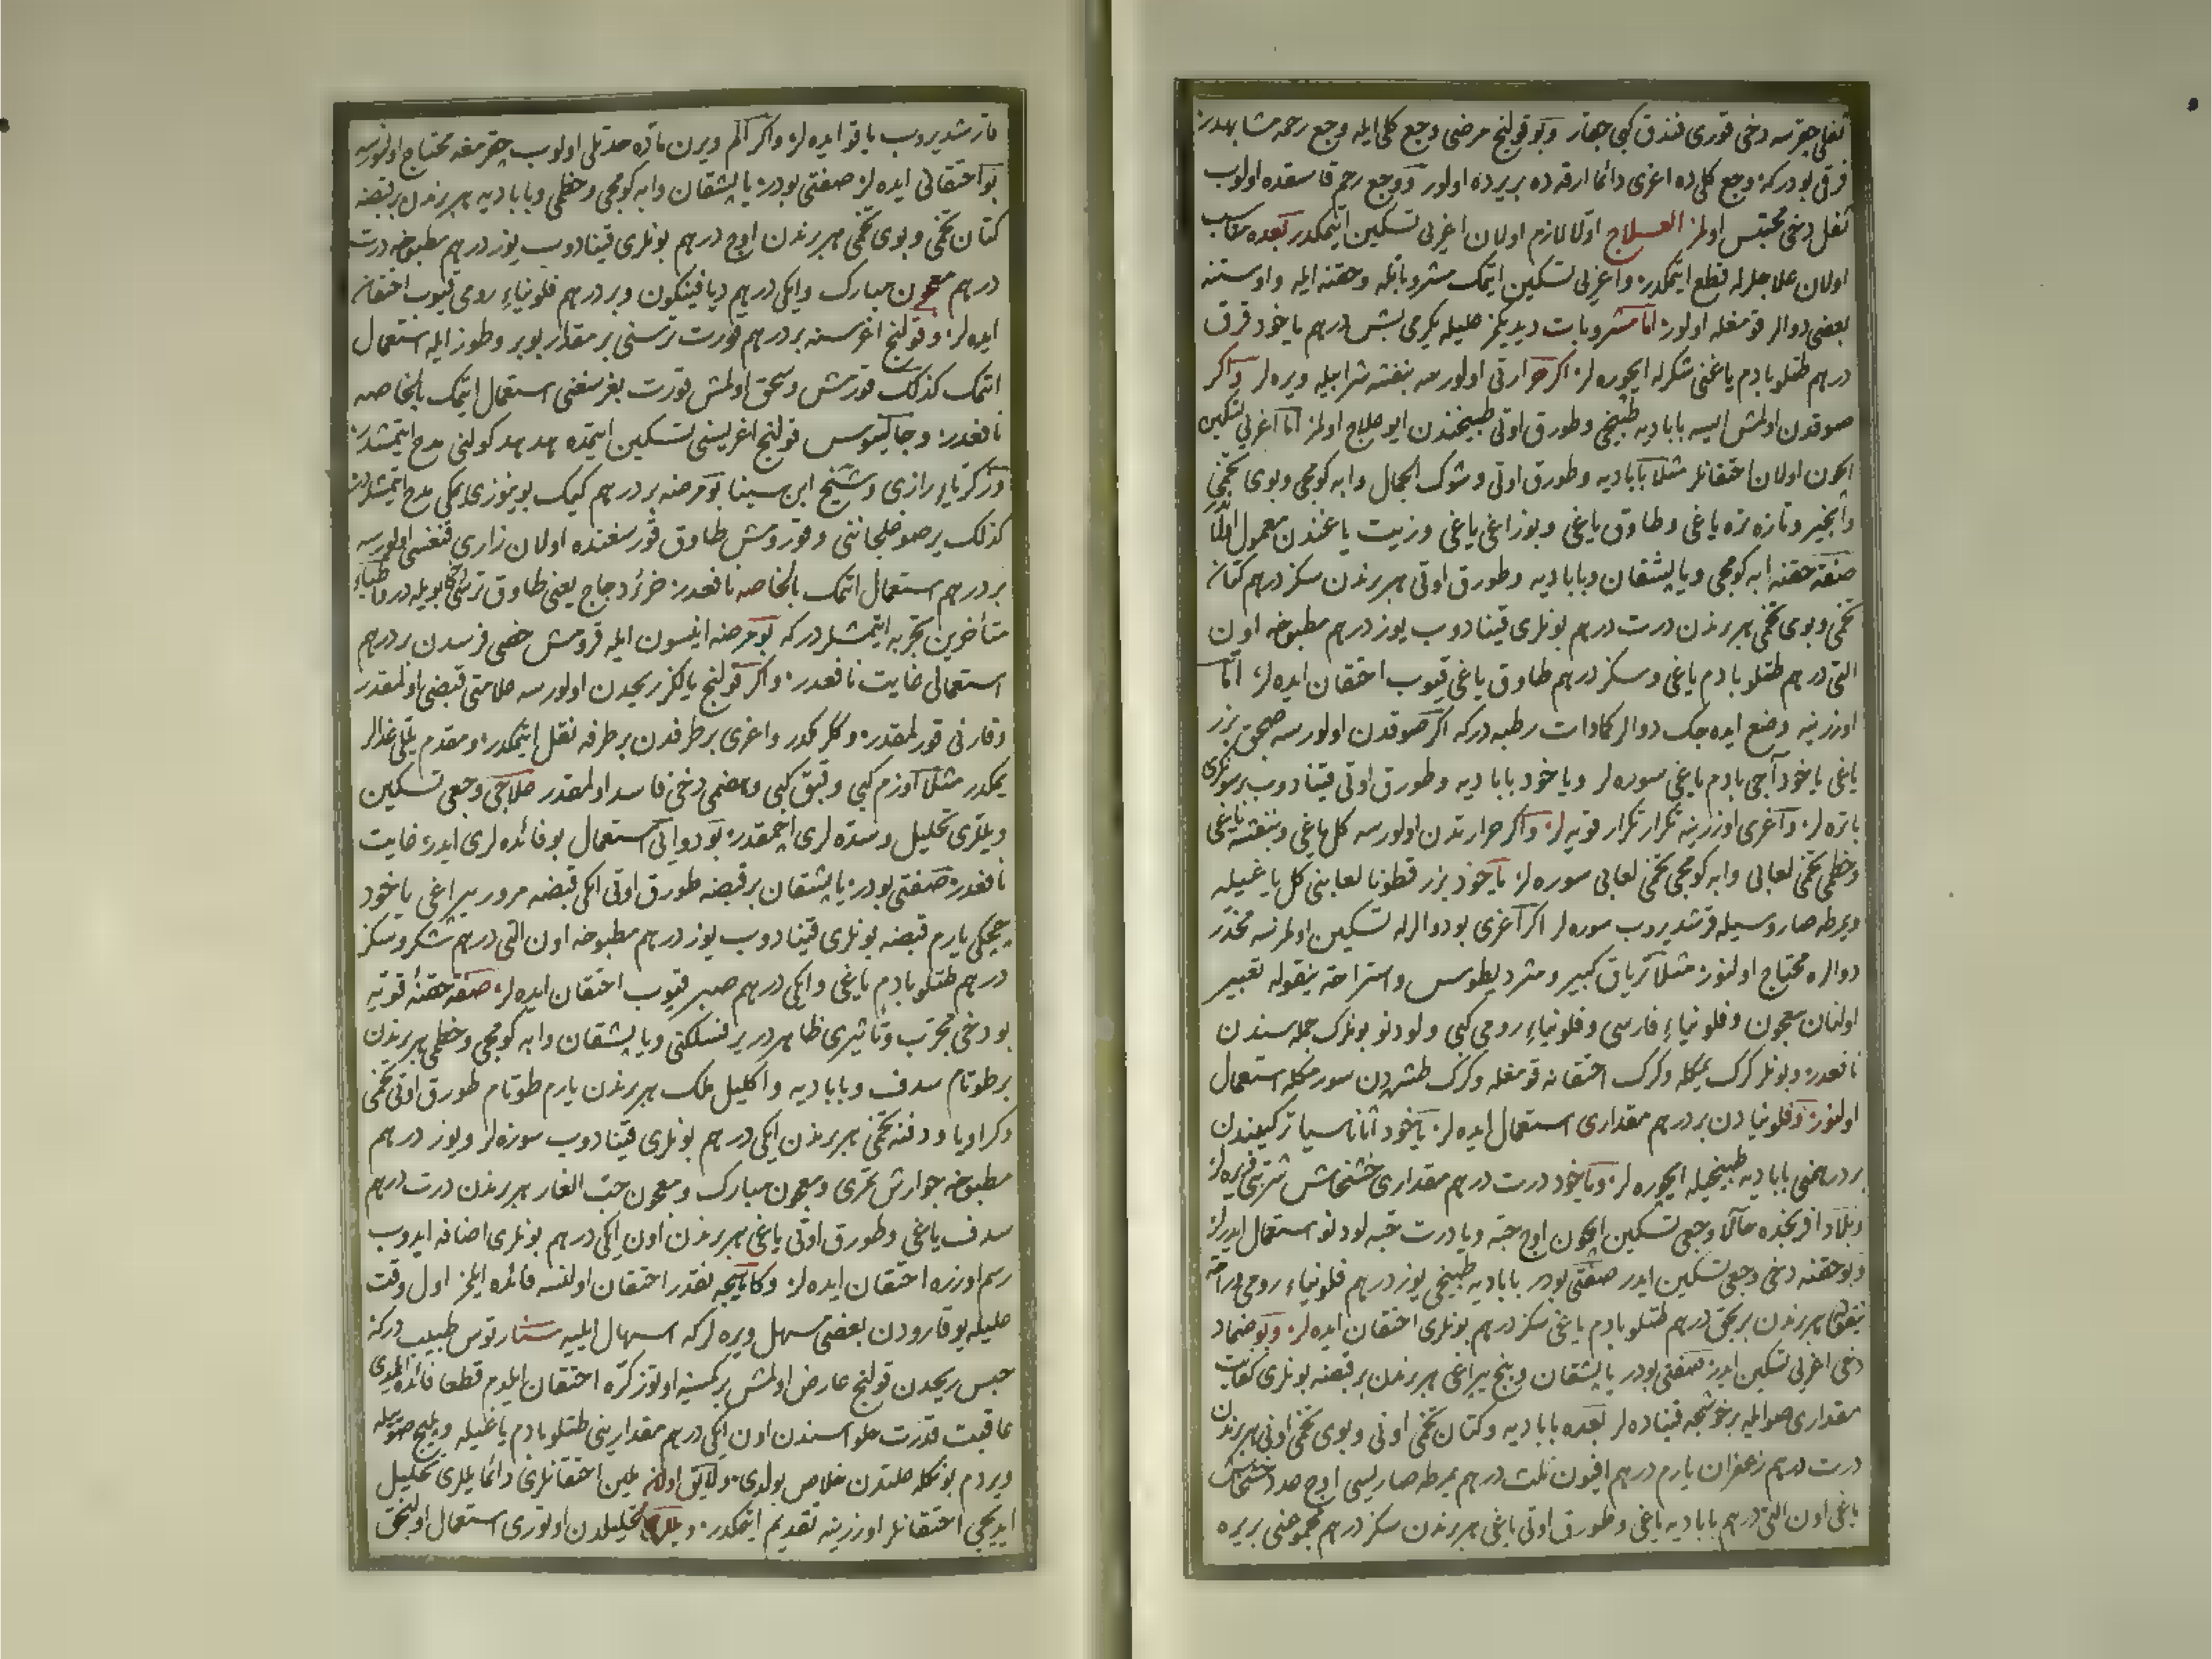 ثفلی چقرسه دخی قوری فندق کبی چقار و بو قولنج مرضی وجع کلی ایله وجع رحمه مشابهدر
فرقی بودرکه وجع کلی ده اغری دائما ارقه ده بر یرده اولور و وجع رحم قاسقده اولوب
ثفل دخی محتبس اولمز العلاج اولا لازم اولان اغریی تسکین ایتمکدر بعده مناسب
اولان علاجلرله قطع ایتمکدر و اغریی تسکین ایتمک مشروباتله و حقنه ایله و اوستنه
بعضی دوالر قومغله اولور اما مشروبات دیدیکمز علیله یکرمی بش درهم یاخود قرق
درهم طتلو بادم یاغنی شکرله ایچوره لر اکر حرارتی اولورسه بنفشه شرابیله ویره لر و اکر
صوقدن اولمش ایسه بابادیه طبیخی و طورق اوتی طبیخندن ایو علاج اولمز اما اغریی تسکین
ایچون اولان احتقانلر مثلا بابادیه و طورق اوتی و شوک الجمال و ابه کومجی و بوی تخمی
و انجیر و تازه تره یاغی و طاوق یاغی و بوزاغی یاغی و زیت یاغندن معمول اولا
صفة حقنه ابه کومجی و یاپشقان و بابادیه و طورق اوتی هر برندن سکز درهم کتان
تخمی و بوی تخمی هر برندن درت درهم بونلری قینادوب یوز درهم مطبوخه اون
التی درهم طتلو بادم یاغی و سکز درهم طاوق یاغی قیوب احتقان ایده لر اما
اوزرینه وضع ایده جک دوالر کمادات رطبه درکه اکر صوقدن اولورسه صحق بزر
یاغی یاخود آجی بادم یاغی سوره لر و یاخود بابادیه و طورق اوتی قینادوب بر سونکری
باتره لر و آغری اوزرینه تکرار تکرار قویه لر و اکر حرارتدن اولورسه کل یاغی و بنفشه یاغی
و خطمی تخمی لعابی و ابه کومجی تخمی لعابی سوره لر یاخود بزر قطونا لعابنی کل یاغیله
و یمرطه صاروسیله قرشدیروب سوره لر اکر آغری بو دوالرله تسکین اولمزسه مخدر
دوالره محتاج اولنور مثلا تریاق کبیر و مثردیطوس و استراحه ینقوله تعبیر
اولنان معجون و فلونیاء فارسی و فلونیاء رومی کبی و لودنو بونلرک جمله سندن
نافعدر و بونلر کرک یمکله و کرک احتقانه قومغله و کرک طشردن سورمکله استعمال
اولنور و فلونیادن بر درهم مقداری استعمال ایده لر یاخود اثاناسیا ترکیبندن
بر درهمنی بابادیه طبیخیله ایچوره لر و یاخود درت درهم مقداری خشخاش شربتی ویره لر
و بلاد افرنجده حالا وجعی تسکین ایچون اوچ حبه و یا درت حبه لودنو استعمال ایدرلر
و بو حقنه دخی وجعی تسکین ایدر صفتی بودر بابادیه طبیخی یوز درهم فلونیاء رومی و راحه
ینقولی هر برندن بر بچق درهم طتلو بادم یاغی سکز درهم بونلری احتقان ایده لر و بو ضماد
دخی اغریی تسکین ایدر صفتی بودر یاپشقان و بنج یپراغی هر برندن بر قبضه بونلری کفایت
مقداری صو ایله بر خوشجه قیناده لر بعده بابادیه و کتان تخمی اونی و بوی تخمی اونی هر برندن
درت درهم زعفران یارم درهم افیون ثلث درهم یمرطه صاریسی اوچ عدد خشخاش
یاغی اون التی درهم بابادیه یاغی و طورق اوتی یاغی هر برندن سکز درهم مجموعنی بر یره
قارشدیروب یاقو ایده لر و اکر الم ویرن ماده حدتلی اولوب چقرمغه محتاج اولنورسه
بو احتقانی ایده لر صفتی بودر یاپشقان و ابه کومجی و خطمی و بابادیه هر برندن بر قبضه
کتان تخمی و بوی تخمی هر برندن اوچ درهم بونلری قینادوب یوز درهم مطبوخه درت
درهم معجون مبارک و ایکی درهم دیافینکون و بر درهم فلونیاء رومی قیوب احتقان
ایده لر و قولنج اغرسنه بر درهم قورت ترسنی بر مقدار بوبر و طوز ایله استعمال
اتمک کذلک قورتمش و سحق اولمش قورت بغرسغنی استعمال اتمک بالخاصه
نافعدر و جالینوس قولنج اغریسنی تسکین ایتمده هدهد کولنی مدح ایتمشدر
و زکریاء رازی و شیخ ابن سینا بو مرضه بر درهم کیک بوینوزی کولی مدح ایتمشلردر
کذلک یر صوغلجاننی و قورومش طاوق قورسغنده اولان زاری قنغسی اولورسه
بر درهم استعمال اتمک بالخاصه نافعدر خرء دجاج یعنی طاوق ترسی کذا بویله در و اطباء
متأخرین تجربه ایتمشلردرکه بو مرضه انیسون ایله قرومش خصی فرسدن بر درهم
استعمالی غایت نافعدر و اکر قولنج یالکز ریحدن اولورسه علامتی قبضی اولمقدر
و قارنی قورلمقدر و ککرکمدر و اغری بر طرفدن بر طرفه نقل ایتمکدر و مقدم یللی غدالر
یمکدر مثلا اوزم کبی و قبق کبی و هضمی دخی فاسد اولمقدر علاجی وجعی تسکین
و یللری تحلیل و سدّه لری اچمقدر بو دوایی استعمال بو فائده لری ایدر غایت
نافعدر صفتی بودر یاپشقان بر قبضه طورق اوتی ایکی قبضه مرور یپراغی یاخود
چیچکی یارم قبضه بونلری قینادوب یوز درهم مطبوخه اون التی درهم شکر و سکز
درهم طتلو بادم یاغی و ایکی درهم صبر قیوب احتقان ایده لر صفة حقنۀ قویه
بو دخی مجرب و تاثیری ظاهردر بر فسلکنی و یاپشقان و ابه کومجی و خطمی هر برندن
بر طوتام سدف و بابادیه و اکلیل ملک هر برندن یارم طوتام طورق اوتی تخمی
و کراویا و دفنه تخمی هر برندن ایکی درهم بونلری قینادوب سوزه لر و یوز درهم
مطبوخه جوارش تمری و معجون مبارک و معجون حب الغار هر برندن درت درهم
سدف یاغی و طورق اوتی یاغی هر برندن اون ایکی درهم بونلری اضافه ایدوب
رسم اوزره احتقان ایده لر و کاهیجه نقدر احتقان اولنسه فائده ایلمز اول وقت
علیله یوقارودن بعضی مسهل ویره لرکه اسهال ایلیه سنارتوس طبیب درکه
حبس ریحدن قولنج عارض اولمش بر کمسنیه اوتوز کره احتقان ایلدم قطعا فائده ایلمدی
عاقبت قدرت حلواسندن اون ایکی درهم مقدارینی طتلو بادم یاغیله و پلیج صوییله
ویردم بونکله علتدن خلاص بولدی و لایق اولان ملین احتقانلری دائما یللری تحلیل
ایدیجی احتقانلر اوزرینه تقدیم ایتمکدر و یللری تحلیلدن اوتوری استعمال اولنجق